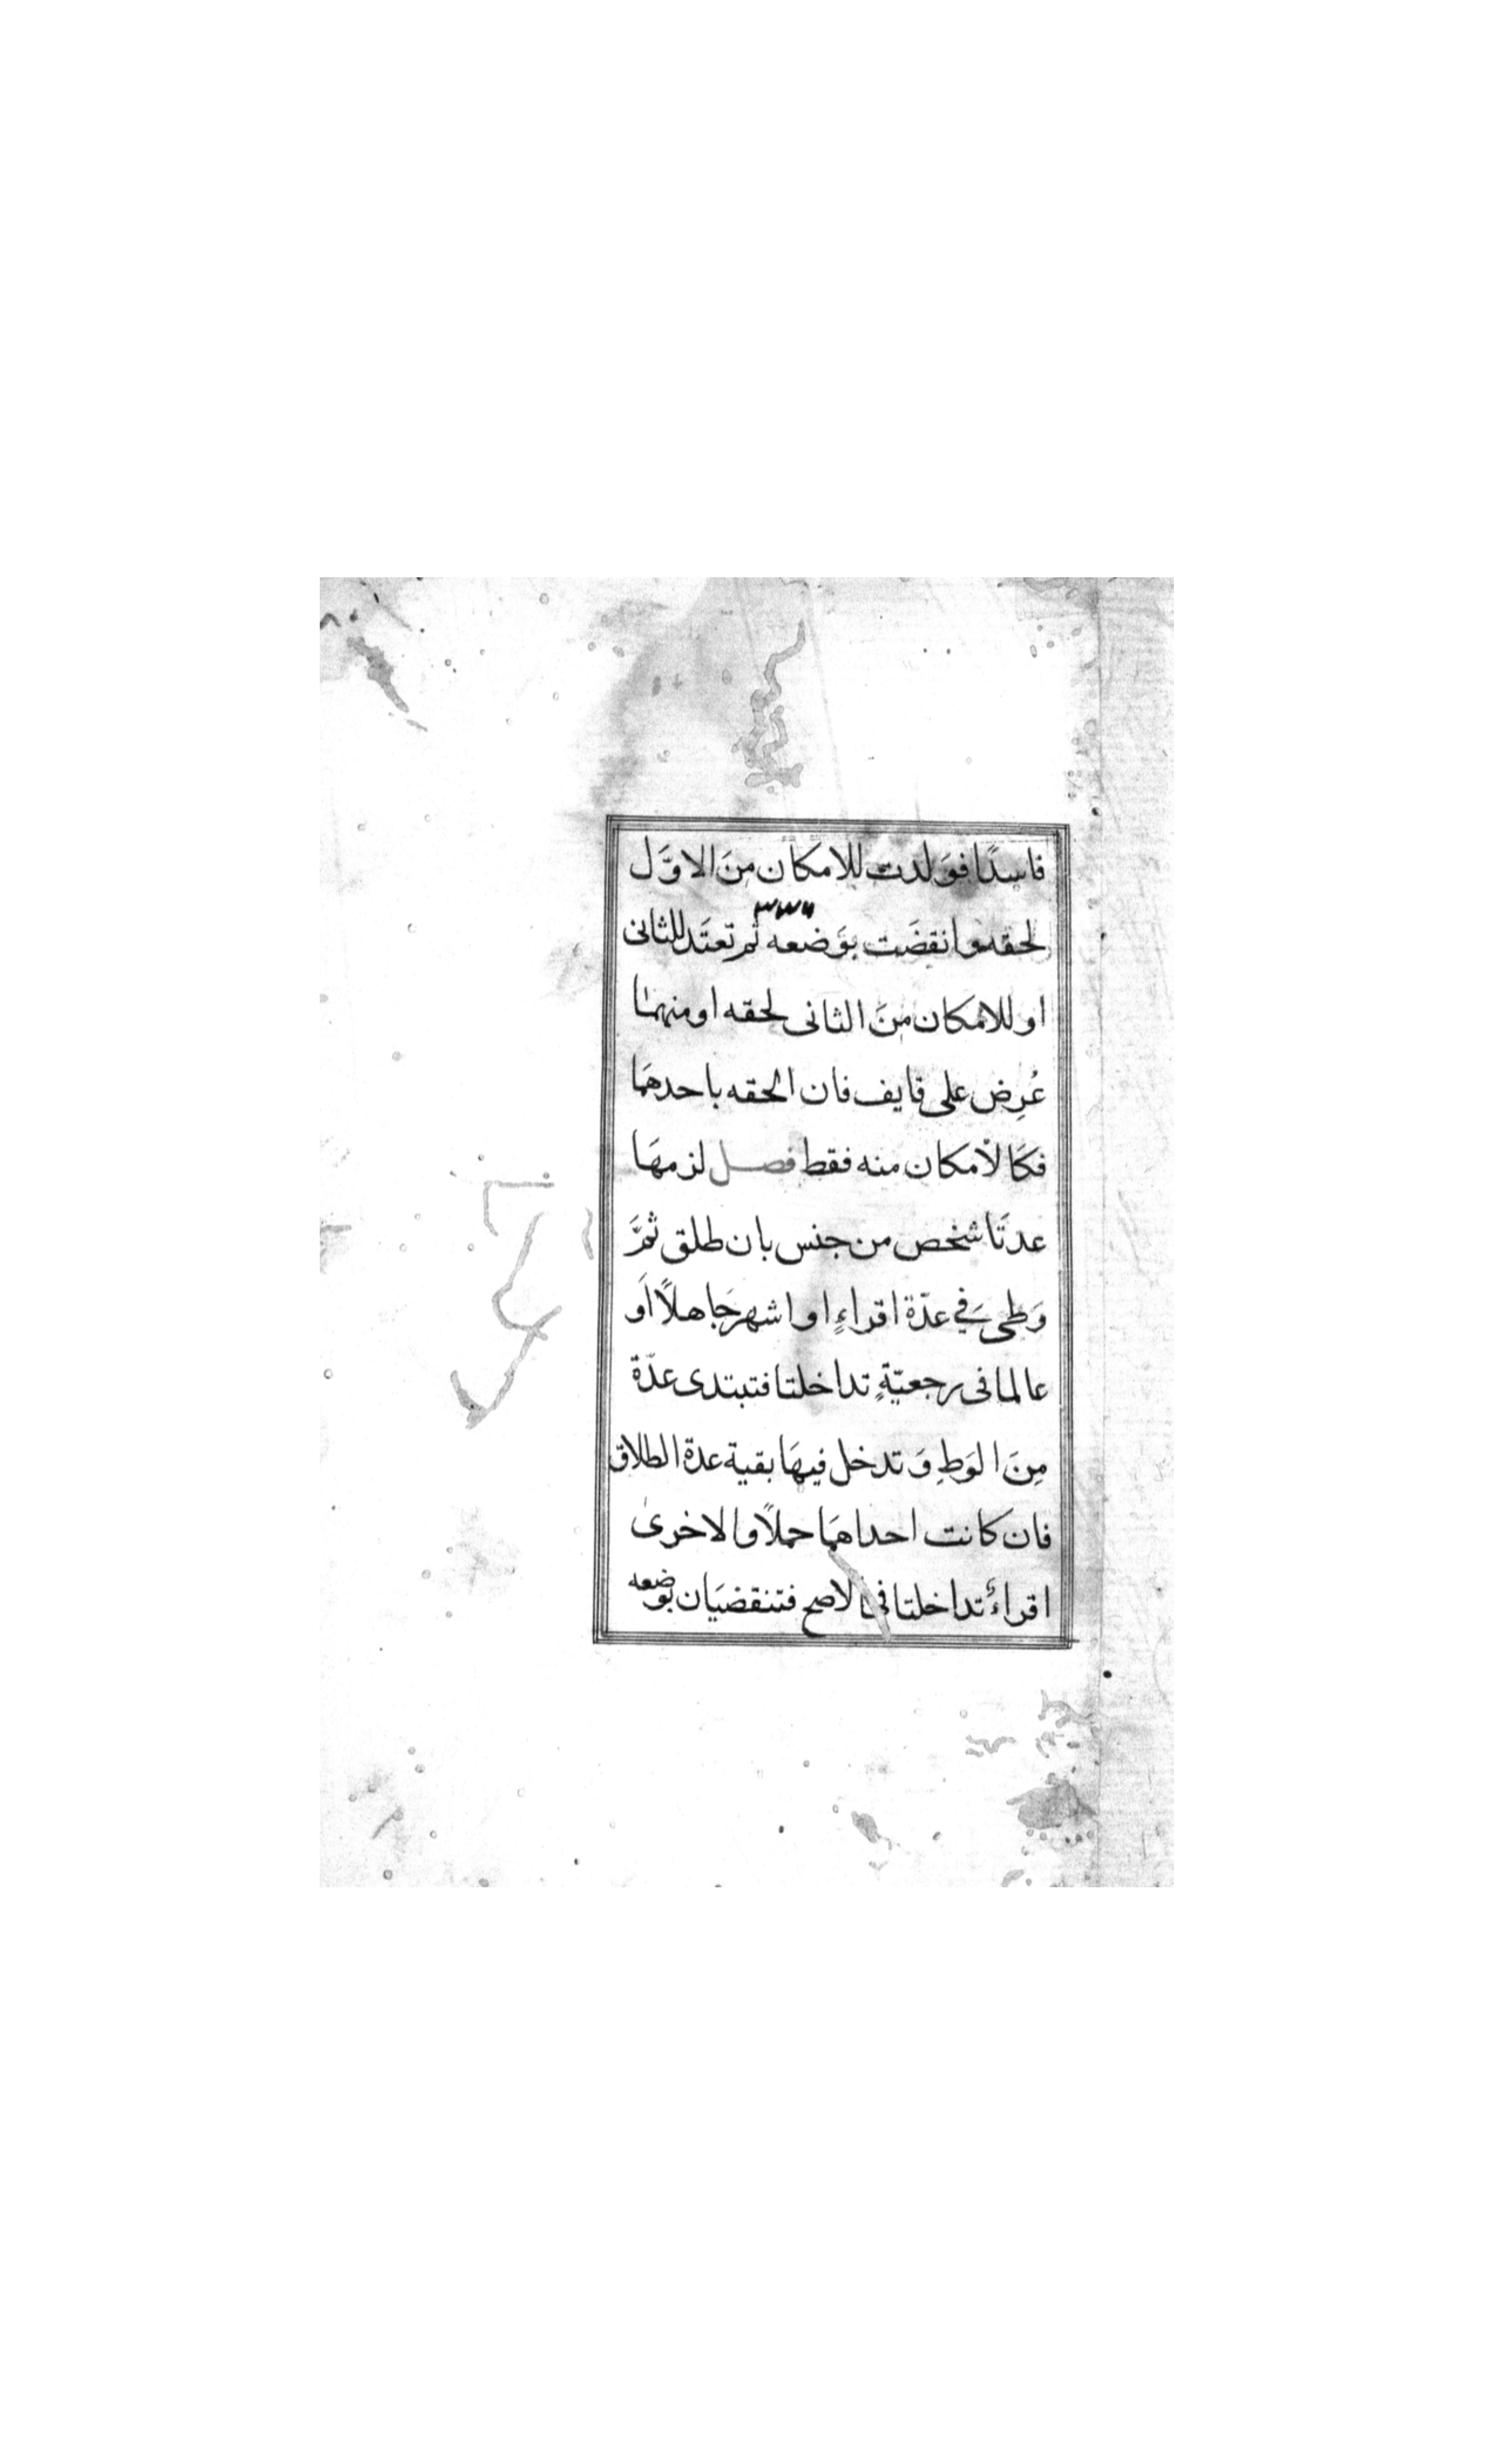 فاسِدًا فوَلدت للامكَان مِنَ الاوَّل
لحقه وانقضَت بوَضعه ثم تعتَد للثانى
او للامكان مِنَ الثانى لحقه او منهمَا
عُرِض على قايف فان الحقه باحدهمَا
فكَالامكان منه فقط فصل لزمهَا
عدتَا شخص من جنس بان طلق ثمَّ
وَطىَ فى عدّة اقراءٍ او اشهر جَاهلاً اَو
عالما فى رجعيّةٍ تداخلتا فتبتدى عدّة
مِنَ الوَطءِ وَتدخل فيهَا بقية عدة الطلاق
فان كانت احداهمَا حملاً والاخرى
اقراءً تداخلتا فى الاصح فتنقضيَان بوضعه